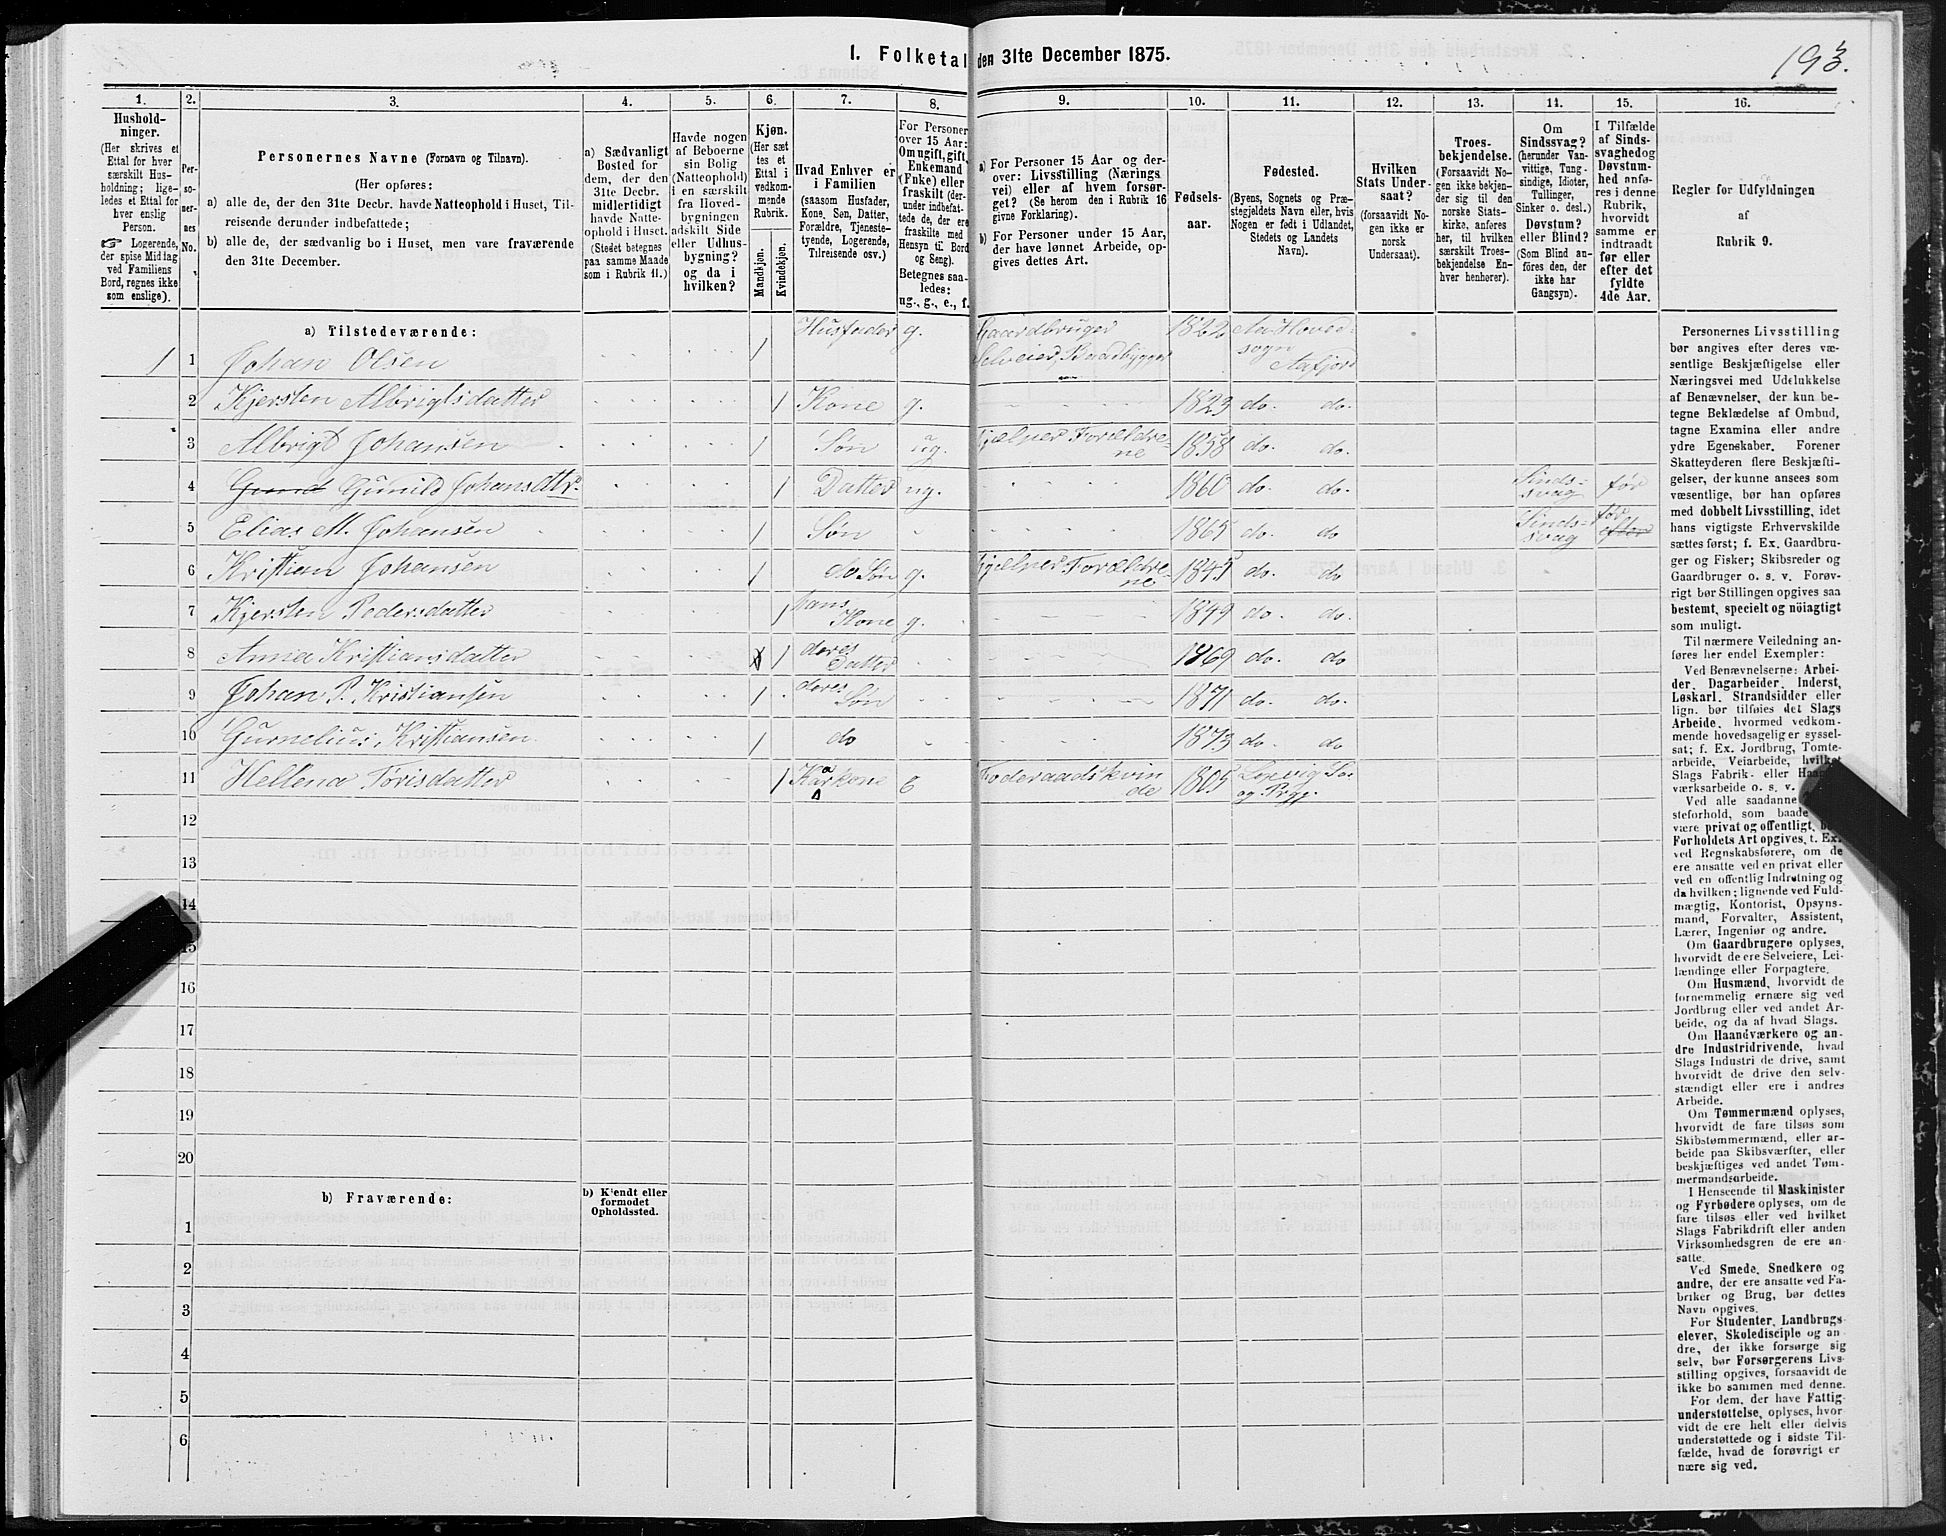 1. Folketal den 31te December 1875.
193.
1. 2. 3. 4. 5. 6. 7. 8. 9. 10. 11. 12. 13. 14. 15. 16.
Hushold-
ninger.
(Her skrives et
Ettal for hver
særskilt Hus-
holdning; lige-
ledes et Ettal for
hver enslig
Person.
☞ Logerende,
der spise Middag
ved Familiens
Bord, regnes ikke
som enslige).
Per-
so-
ner-
nes
No.
Personernes Navne (Fornavn og Tilnavn).
(Her opføres:
a) alle de, der den 31te Decbr. havde Natteophold i Huset, Til-
reisende derunder indbefattede;
b) alle de, der sædvanlig bo i Huset, men vare fraværende
den 31te December.
a) Sædvanligt
Bosted for
dem, der den
31te Decbr.
midlertidigt
havde Natte-
ophold i Huset.
(Stedet betegnes
paa samme Maade
som i Rubrik 11.)
Havde nogen
af Beboerne
sin Bolig
(Natteophold)
i en særskilt
fra Hoved-
bygningen
adskilt Side
eller Udhus-
bygning?
og da i
hvilken?
Kjøn.
(Her sæt
tes et
Ettal i
vedkom-
mende
Rubrik.
Mandkjøn.
Kvindekjøn.
Hvad Enhver er
i Familien
(saasom Husfader,
Kone, Søn, Datter,
Forældre, Tjeneste-
tyende, Logerende,
Tilreisende osv.)
For Personer
over 15 Aar:
Om ugift, gift,
Enkemand
(Enke) eller
fraskilt (der-
under indbefat-
tede de, der ere
fraskilte med
Hensyn til Bord
og Seng).
Betegnes saa-
ledes:
ug., g., e., f.
a) For Personer 15 Aar og der-
over: Livsstilling (Nærings
vei) eller af hvem forsør-
get? (Se herom den i Rubrik 16
givne Forklaring).
b) For Personer under 15 Aar,
der have lønnet Arbeide, op-
gives dettes Art.
Fødsels-
aar.
Fødested.
(Byens, Sognets og Præ-
stegjeldets Navn eller, hvis
Nogen er født i Udlandet,
Stedets og Landets
Navn).
Hvilken
Stats Under-
saat?
(forsaavidt No-
gen ikke er
norsk
Undersaat).
Troes-
bekjendelse.
(Forsaavidt No-
gen ikke bekjen-
der sig til den
norske Stats-
kirke, anføres
her, til hvilken
særskilt Troes-
bekjendelse En-
hver henhører).
Om
Sindssvag?
(herunder Van-
vittige, Tung-
sindige, Idioter,
Tullinger,
Sinker o. desl.)
Døvstum?
eller Blind?
(Som Blind an-
føres den, der
ikke har
Gangsyn).
I Tilfælde
af Sinds-
svaghed og
Døvstum-
hed anfø-
res i denne
Rubrik,
hvorvidt
samme er
indtraadt
før eller
efter det
fyldte
4de Aar.
Regler for Udfyldningen
af
Rubrik 9.
a) Tilstedeværende:
1 1 Johan Olsen 1 Husfader g. Gaardbruger Selveier, Baadbygger 1822 Aa Hoved- sogn Aafjord
2 Kjersten Albrigtsdatter 1 Kone g. 1823 do. do.
3 Albrigt Johansen 1 Søn ug. hjælper Forældre- ne 1858 do. do.
4 Gunild Johansdttr. 1 Datter ug. 1860 do. do. Sinds- svag før
5 Elias M. Johansen 1 Søn 1865 do. do Sinds- svag før efter
6 Kristian Johansen 1 do Søn g. hjælper Forældre- ne 1845 do. do
7 Kjersten Pedersdatter 1 hans Kone g. 1849 do. do.
8 Anna Kristiansdatter 1 deres Datter 1869 do. do
9 Johan P. Kristiansen 1 deres Søn 1871 do. do.
10 Gurnelius Kristiansen 1 do 1873 do. do
11 Hellena Torisdatter 1 Karkone e Foderaadskvin de 1805
12
13
14
15
16
17
18
19
20
b) Fraværende:
b) Kjendt eller
formodet
Opholdssted.
1
2
3
4
5
6
Personernes Livsstilling
bør angives efter deres væ-
sentlige Beskjæftigelse eller
Næringsvei med Udelukkelse
af Benævnelser, der kun be-
tegne Beklædelse af Ombud,
tagne Examina eller andre
ydre Egenskaber. Forener
Skatteyderen flere Beskjæfti-
gelser, der kunne ansees som
væsentlige, bør han opføres
med dobbelt Livsstilling, idet
hans vigtigste Erhvervskilde
sættes først; f. Ex. Gaardbru-
ger og Fisker; Skibsreder og
Gaardbruger o. s. v. Forøv-
rigt bør Stillingen opgives saa
bestemt, specielt og nöiagtigt
som muligt.
Til nærmere Veiledning an-
føres her endel Exempler:
Ved Benævnelserne: Arbei-
der, Dagarbeider, Inderst,
Løskarl, Strandsidder eller
lign. bør tilføies det Slags
Arbeide, hvormed vedkom-
mende hovedsagelig er syssel-
sat; f. Ex. Jordbrug, Tomte-
arbeide, Veiarbeide, hvilket
Slags Fabrik- eller
værksarbeide o. s. v.
Ved alle saadanne
steforhold, som baade
være privat og offentligt,
Forholdets Art opgives, t. Ex.
ved Regnskabsførere, om de
ere ansatte ved en privat eller
ved en offentlig Indretning og
da hvilken; lignende ved Fuld-
mægtig, Kontorist, Opsyns-
mand, Forvalter, Assistent,
Lærer, Ingeniør og andre.
Om Gaardbrugere oplyses,
hvorvidt de ere Selveiere, Lei-
lændinge eller Forpagtere.
Om Husmænd, hvorvidt de
fornemmelig ernære sig ved
Jordbrug eller ved andet Ar-
beide, og da af hvad Slags.
Om Haandværkere og an-
dre Industridrivende, hvad
Slags Industri de drive, samt
hvorvidt de drive den selv-
stændigt eller ere i andres
Arbeide.
Om Tømmermænd oplyses,
hvorvidt de fare tilsøs som
Skibstømmermænd, eller ar-
beide paa Skibsværfter, eller
beskjæftiges ved andet Tøm-
mermandsarbeide.
I Henseende til Maskinister
og Fyrbødere oplyses, om de
fare tilsøs eller ved hvilket
Slags Fabrikdrift eller anden
Virksomhedsgren de ere an-
satte.
Ved Smede, Snedkere og
andre, der ere ansatte ved Fa-
briker og Brug, bør dettes
Navn opgives.
For Studenter, Landbrugs-
elever, Skoledisciple og an-
dre, der ikke forsørge sig
selv, bør Forsørgerens Livs-
stilling opgives, forsaavidt de
ikke bo sammen med denne.
For dem, der have Fattig-
understøttelse, oplyses, hvor-
vidt de ere helt eller delvis
understøttede og i sidste Til-
fælde, hvad de forøvrigt er
nære sig ved.